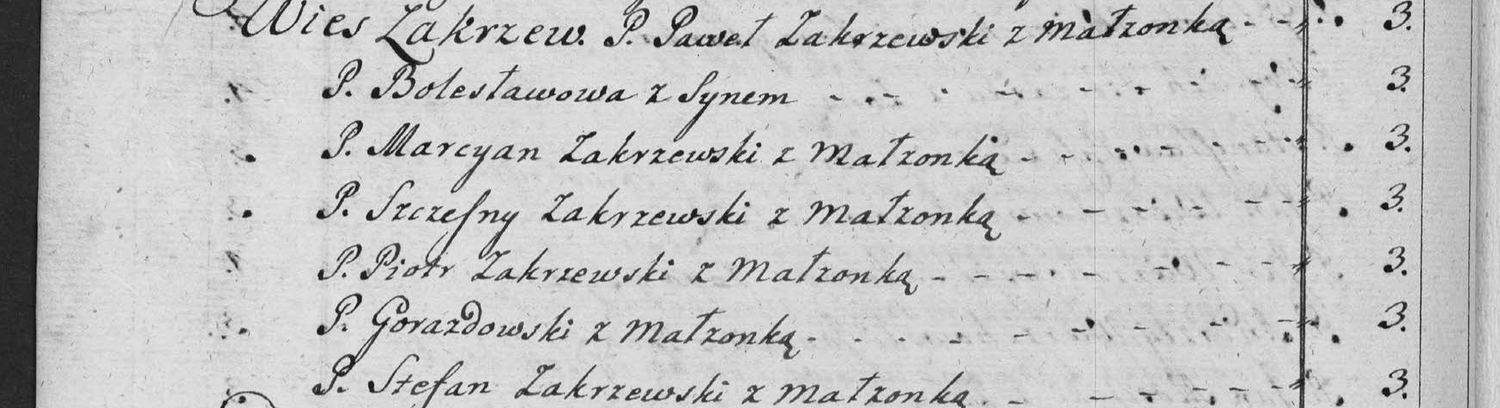 Wies Zakrzew. P. Paweł Zakrzewski z Małzonką - - 3.
P. Bolesławowa z Synem - - - 3.
P. Marcyan Zakrzewski z Małzonką - - 3.
P. Szczęsny Zakrzewski z Małzonką - - - - - 3.
P. Piotr Zakrzewski z Małzonką - - - - - - 3.
P. Gorazdowski z Małzonką - - - - 3.
P. Stefan Zakrzewski z Małzonką - - - - - 3.